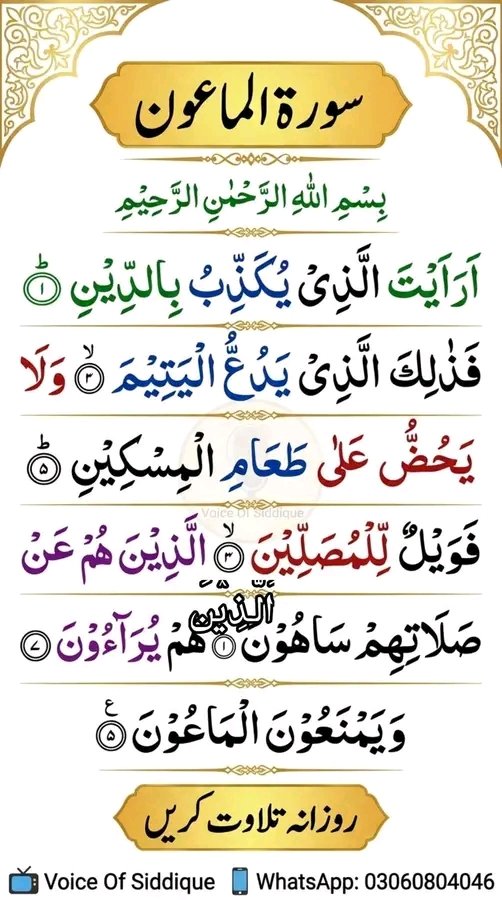 سورۃ الماعون
بِسْمِ اللهِ الرَّحْمٰنِ الرَّحِيْمِ
اَرَاَيْتَ الَّذِىْ يُكَذِّبُ بِالدِّيْنِ ؕ ۝۱
فَذٰلِكَ الَّذِىْ يَدُعُّ الْيَتِيْمَ ۙ ۝۳ وَلَا
يَحُضُّ عَلٰى طَعَامِ الْمِسْكِيْنِ ؕ ۝۵
Voice Of Siddique
فَوَيْلٌ لِّلْمُصَلِّيْنَ ۙ ۝۳ الَّذِيْنَ هُمْ عَنْ
صَلَاتِهِمْ سَاهُوْنَ ۝۱ الَّذِيْنَ هُمْ يُرَآءُوْنَ ۝۷
وَيَمْنَعُوْنَ الْمَاعُوْنَ ۝۵ ع
روزانہ تلاوت کریں
Voice Of Siddique WhatsApp: 03060804046